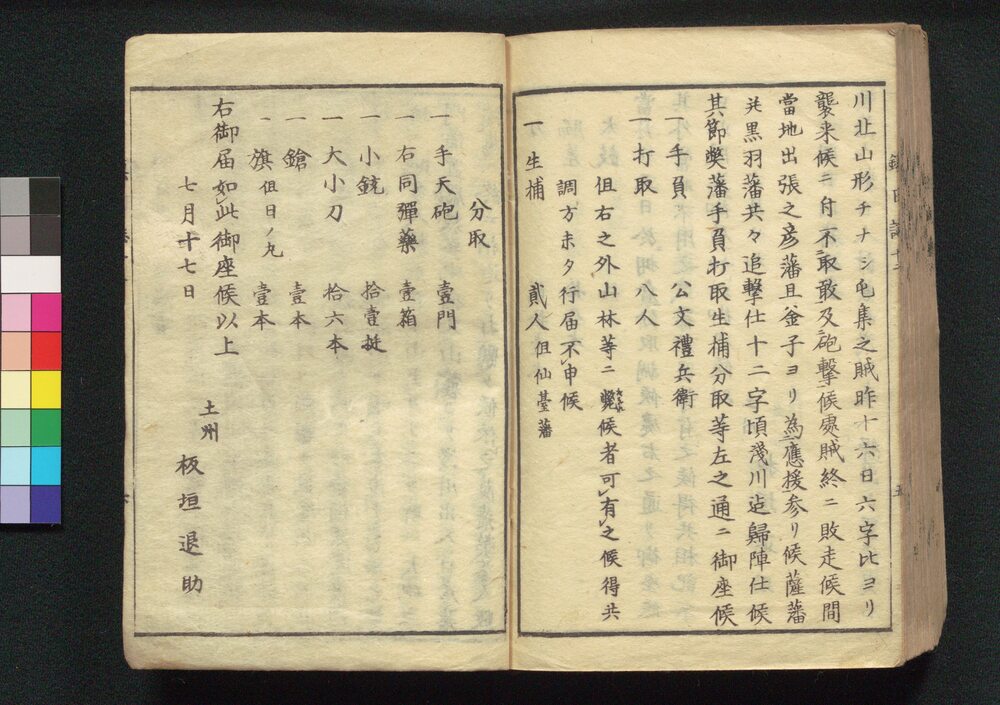 川北山形チナシ屯集之賊昨十六日六字比ヨリ
襲来候ニ付不取敢及砲撃候處賊終ニ敗走候間
當地出張之彦藩且釜子ヨリ為應援参リ候薩藩
并黒羽藩共々追撃仕十二字頃淺川迠歸陣仕候
其節獘藩手負打取生捕分取等左之通ニ御座候
一手負　公文禮兵衛
一打取　八人
但右之外山林等ニ斃候者可有之候得共
調方未タ行届不申候
一生捕　貳人但仙䑓藩
分取
一手天砲　壹門
一右同彈藥　壹箱
一小銃　拾壹挺
一大小刀　拾六本
一鎗　壹本
一旗但日ノ丸　壹本
右御届如此御座候以上
七月十七日
土州
板垣退助